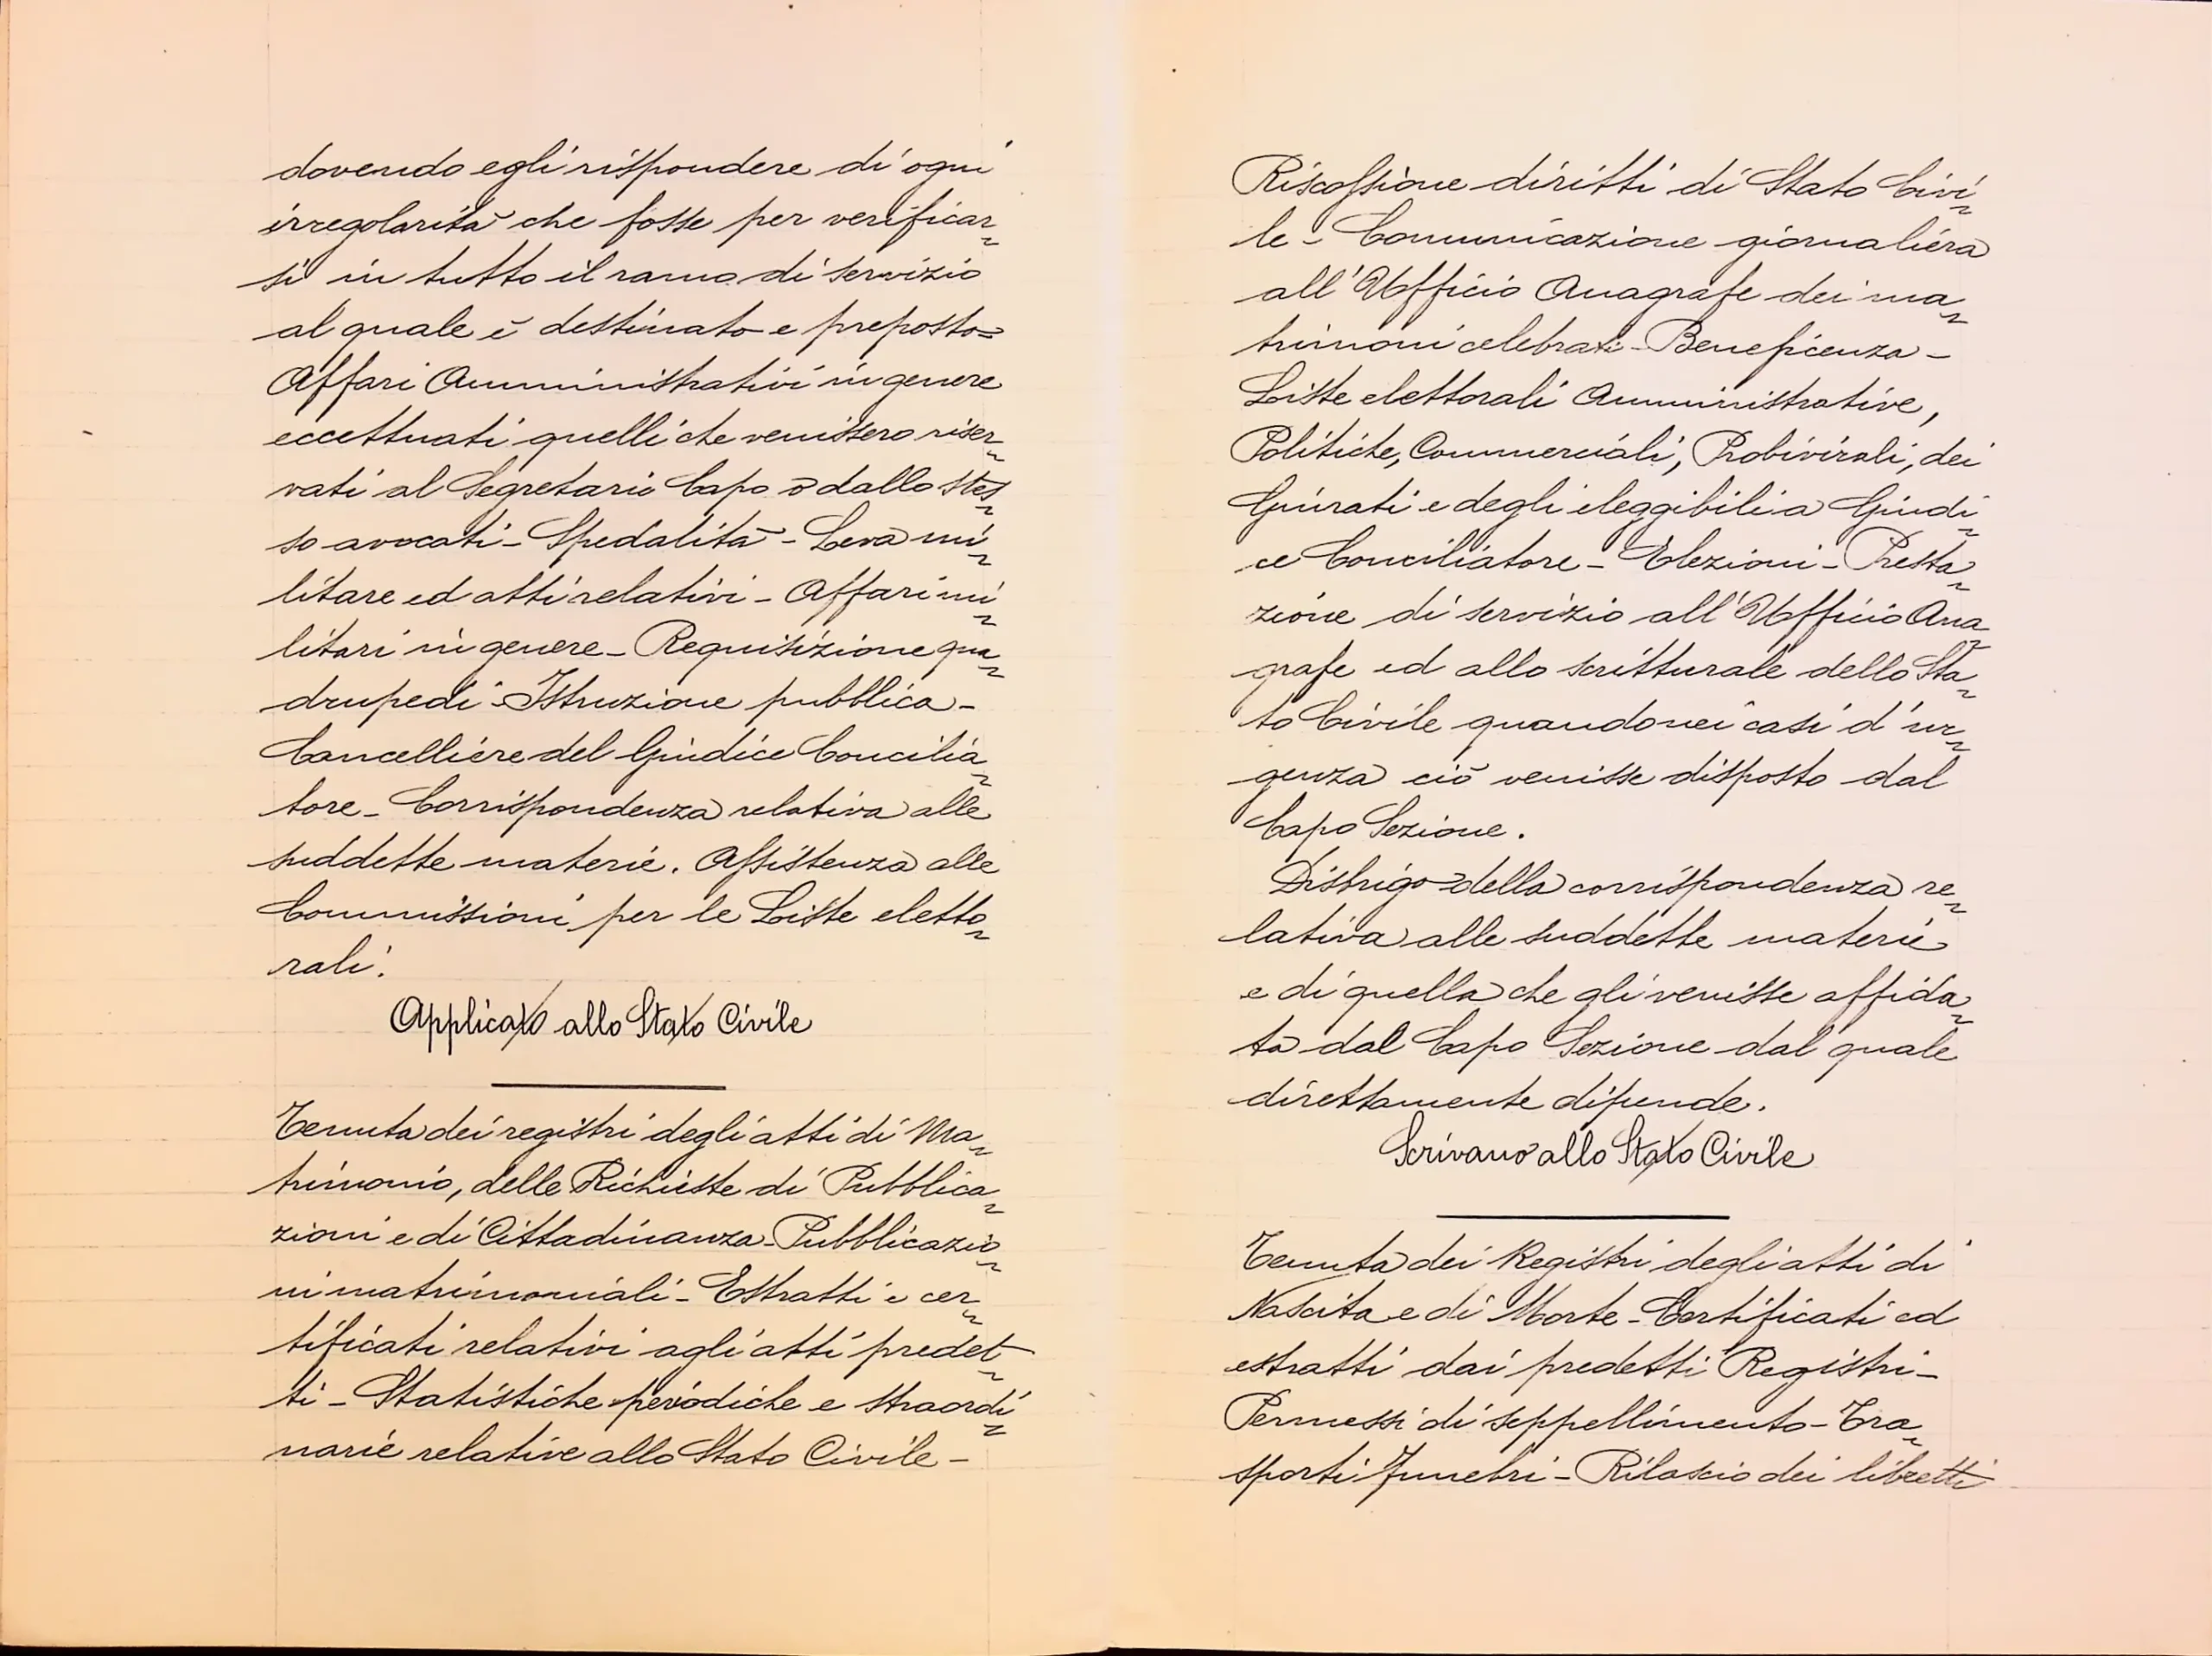 dovendo egli rispondere di ogni
irregolarità che fosse per verificar
si in tutto il ramo di servizio
al quale è destinato e preposto=
Affari Amministrativi in genere
eccettuati quelli che venissero riser
vati al Segretario Capo o dallo stes
so avocati - Spedalità - Leva mi
litare ed atti relativi - Affari mi
litari in genere - Requisizione qua
drupedi - Istruzione pubblica -
Cancelliere del Giudice Concilia
tore - Corrispondenza relativa alle
suddette materie. Assistenza alle
Commissioni per le Liste eletto
rali.
Applicato allo Stato Civile
Tenuta dei registri degli atti di Ma
trimonio, delle Richieste di Pubblica
zioni e di Cittadinanza - Pubblicazio
ni matrimoniali - Estratti e cer
tificati relativi agli atti predet
ti - Statistiche periodiche e straordi
narie relative allo Stato Civile -
Riscossione diritti di Stato Civi
le - Comunicazione giornaliera
all'Ufficio Anagrafe dei ma
trimoni celebrati - Beneficenza -
Liste elettorali Amministrative,
Politiche, Commerciali, Probivirali, dei
Giurati e degli eleggibili a Giudi
ce Conciliatore - Elezioni - Presta
zione di servizio all'Ufficio Ana
grafe ed allo scritturale dello Sta
to Civile quando nei casi d'ur
genza ciò venisse disposto dal
Capo Sezione.
Disbrigo della corrispondenza re
lativa alle suddette materie
e di quella che gli venisse affida
ta dal Capo Sezione dal quale
direttamente dipende.
Scrivano allo Stato Civile
Tenuta dei Registri degli atti di
Nascita e di Morte - Certificati ed
estratti dai predetti Registri -
Permessi di seppellimento - Tra
sporti funebri - Rilascio dei libretti